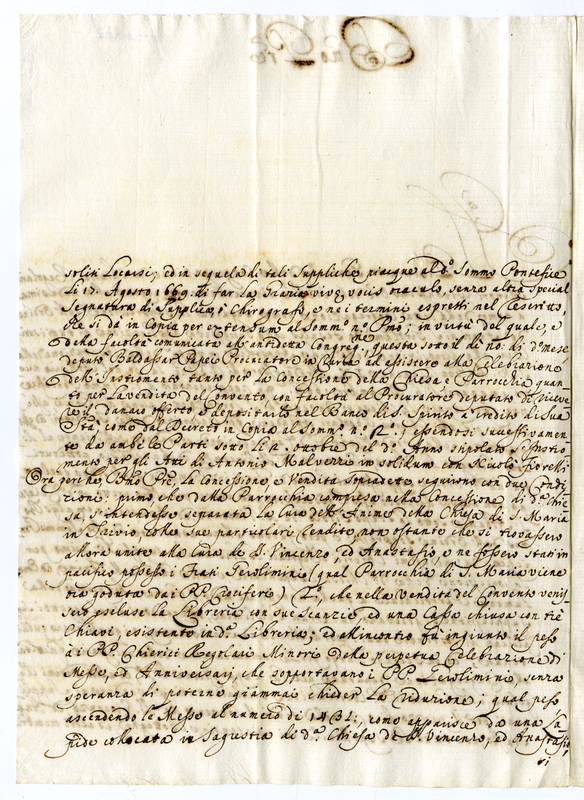 soliti Locarsi; ed in sequela di tali Suppliche piacque al d.º Sommo Pontefice
li 17. Agosto 1669. di far La Grazia vivæ vocis oraculo, senza altra special
Segnatura di Supplica, ò Chirografo, e nei termini espressi nel Rescritto,
che si dà in Copia per extensum al Somm.º n.º P.mo; in virtù del quale, e
della facoltà comunicata all'antedetta Congreg.ne, questa sotto il dì 20. di d.º mese
deputò Baldassar Papei Procuratore in Curia ad assistere alla Celebrazione
dell'Instromento tanto per la Concessione della Chiesa, e Parrocchia quan-
to per la Vendita del Convento, con facoltà al Procuratore deputato di riceve-
re il danaro offerto, e depositarlo nel Banco di S. Spirito à credito di Sua
Stà, come dal Decreto in Copia al Somm.º n.º 2.; essendosi successivamen-
te da ambe le Parti sotto li Ottobre del d.º Anno stipolato l'Istro-
mento per gli Atti di Antonio Malvezzi in solidum con Nicolò Fiorelli
Ora perche, la Concessione, e Vendita sopradette seguirono con due Condi-
zioni: primo che dalla Parrocchia compresa nella concessione di d.ª Chie-
sa, s'intendesse separata La Cura dell'Anime della Chiesa di S. Maria
in Trivio colle sue particolari Rendite, non ostante che si trovassero
allora unite alla Cura de' SS. Vincenzo, ed Anastasio, e ne fossero stati in
pacifico possesso i Frati Gerolimini (qual Parrocchia di S. Maria viene
ora goduta dai PP. Crociferi) 2.º, che nella Vendita del Convento venis-
sero escluse La Libreria con sue scanzie, ed una Cassa chiusa con tre
Chiavi, esistente in d.ª Libreria; ed all'incontro fù ingiunto il peso
à i PP. Chierici Regolari Minori della perpetua Celebrazione di
Messe, ed Anniversarj, che sopportavano i PP. Gerolimini senza
speranza di poterne giammai chieder La riduzione; qual peso
ascendendo le Messe al numero di 1431., come apparisce da una La-
pide collocata in Sagrestia di d.ª Chiesa de' SS. Vincenzo, ed Anastasio,